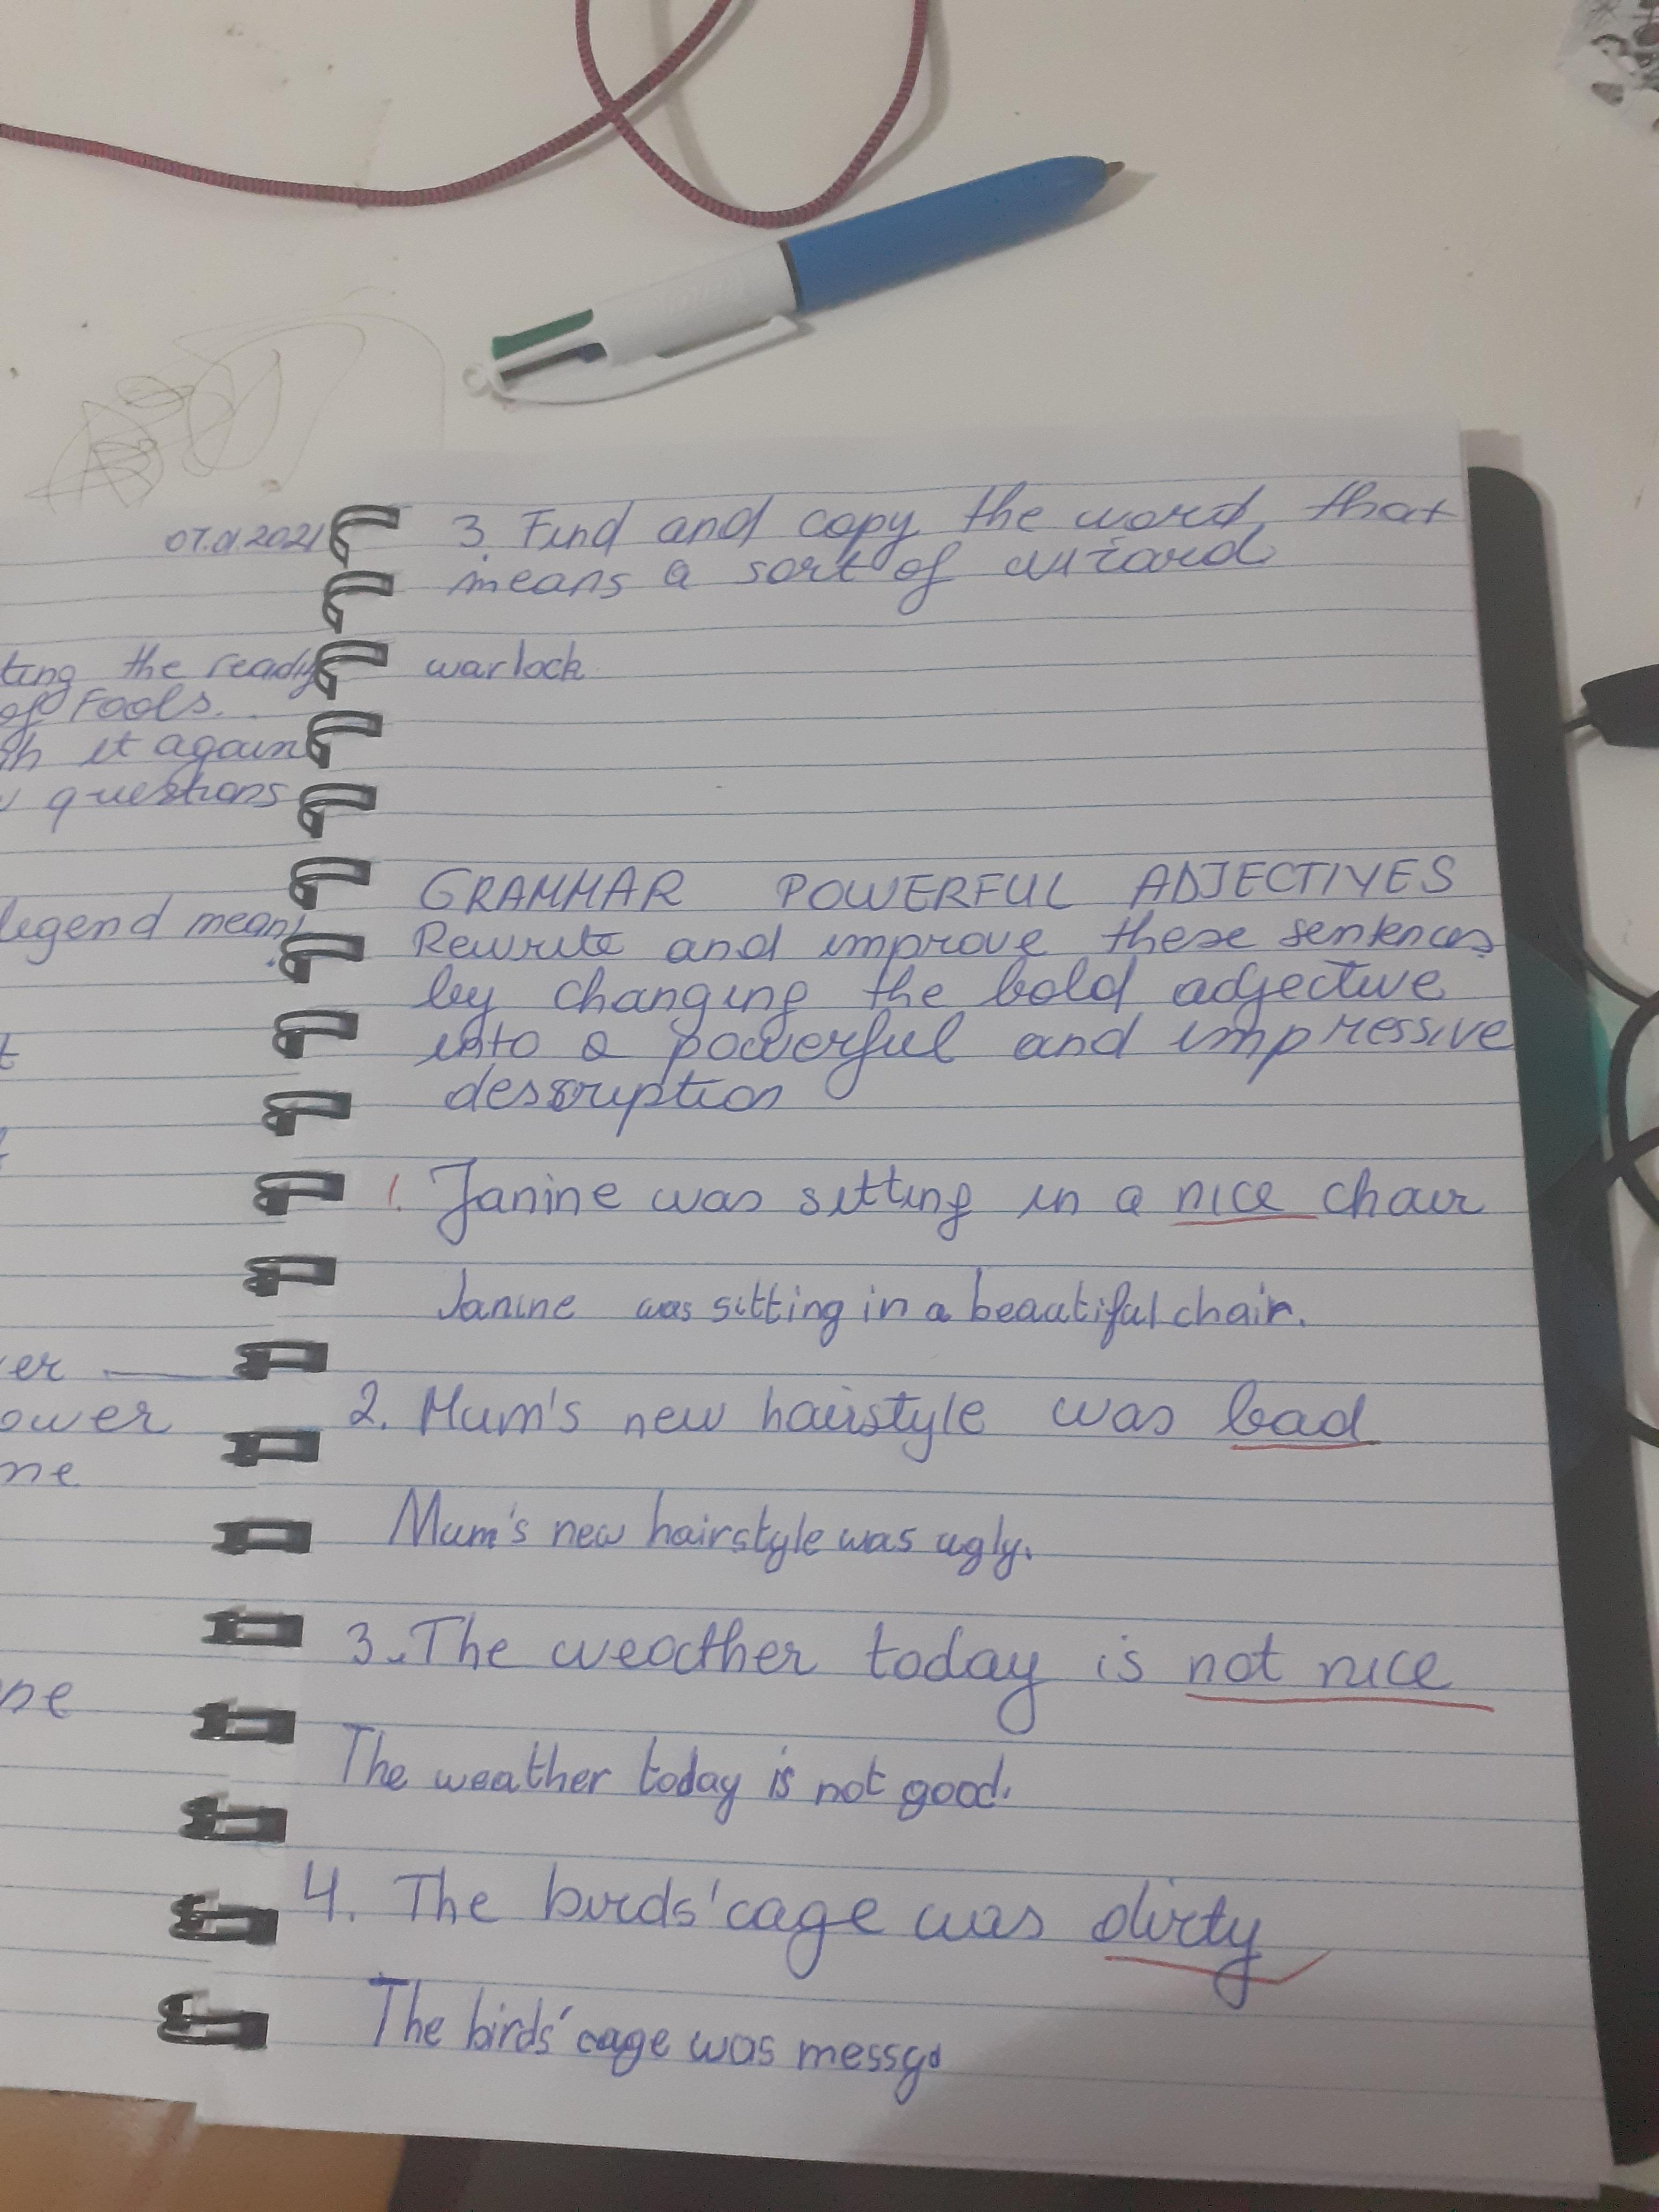 07.01.2021
ting the ready
of Fools.
it again
questions
legend mean
er
ower
ne
ne
3. Find and copy the word that
means a sort of wizard
warlock
GRAMMAR POWERFUL ADJECTIVES
Rewrite and improve these sentences
by changing the bold adjective
into a powerful and impressive
desscruption
1. Janine was sitting in a nice chair
Janine was sitting in a beautiful chair.
2. Mum's new hairstyle was bad
Mum's new hairstyle was ugly.
3. The weather today is not nice
The weather today is not good.
4. The birds' cage was dirty
The birds' cage was messy.